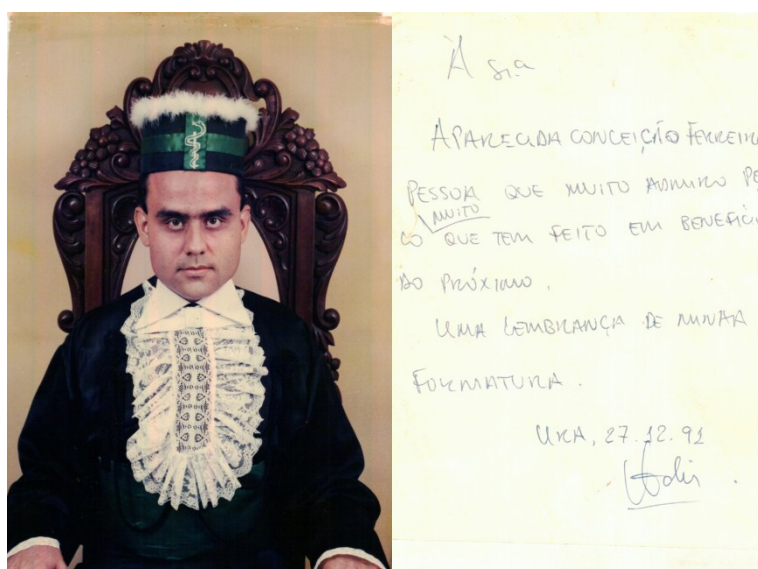 À Sra
APARECIDA CONCEIÇÃO FERREIRA
PESSOA QUE MUITO ADMIRO PE
MUITO
LO QUE TEM FEITO EM BENEFÍCIO
DO PRÓXIMO.
UMA LEMBRANÇA DE MINHA
FORMATURA.
URA, 27.12.91